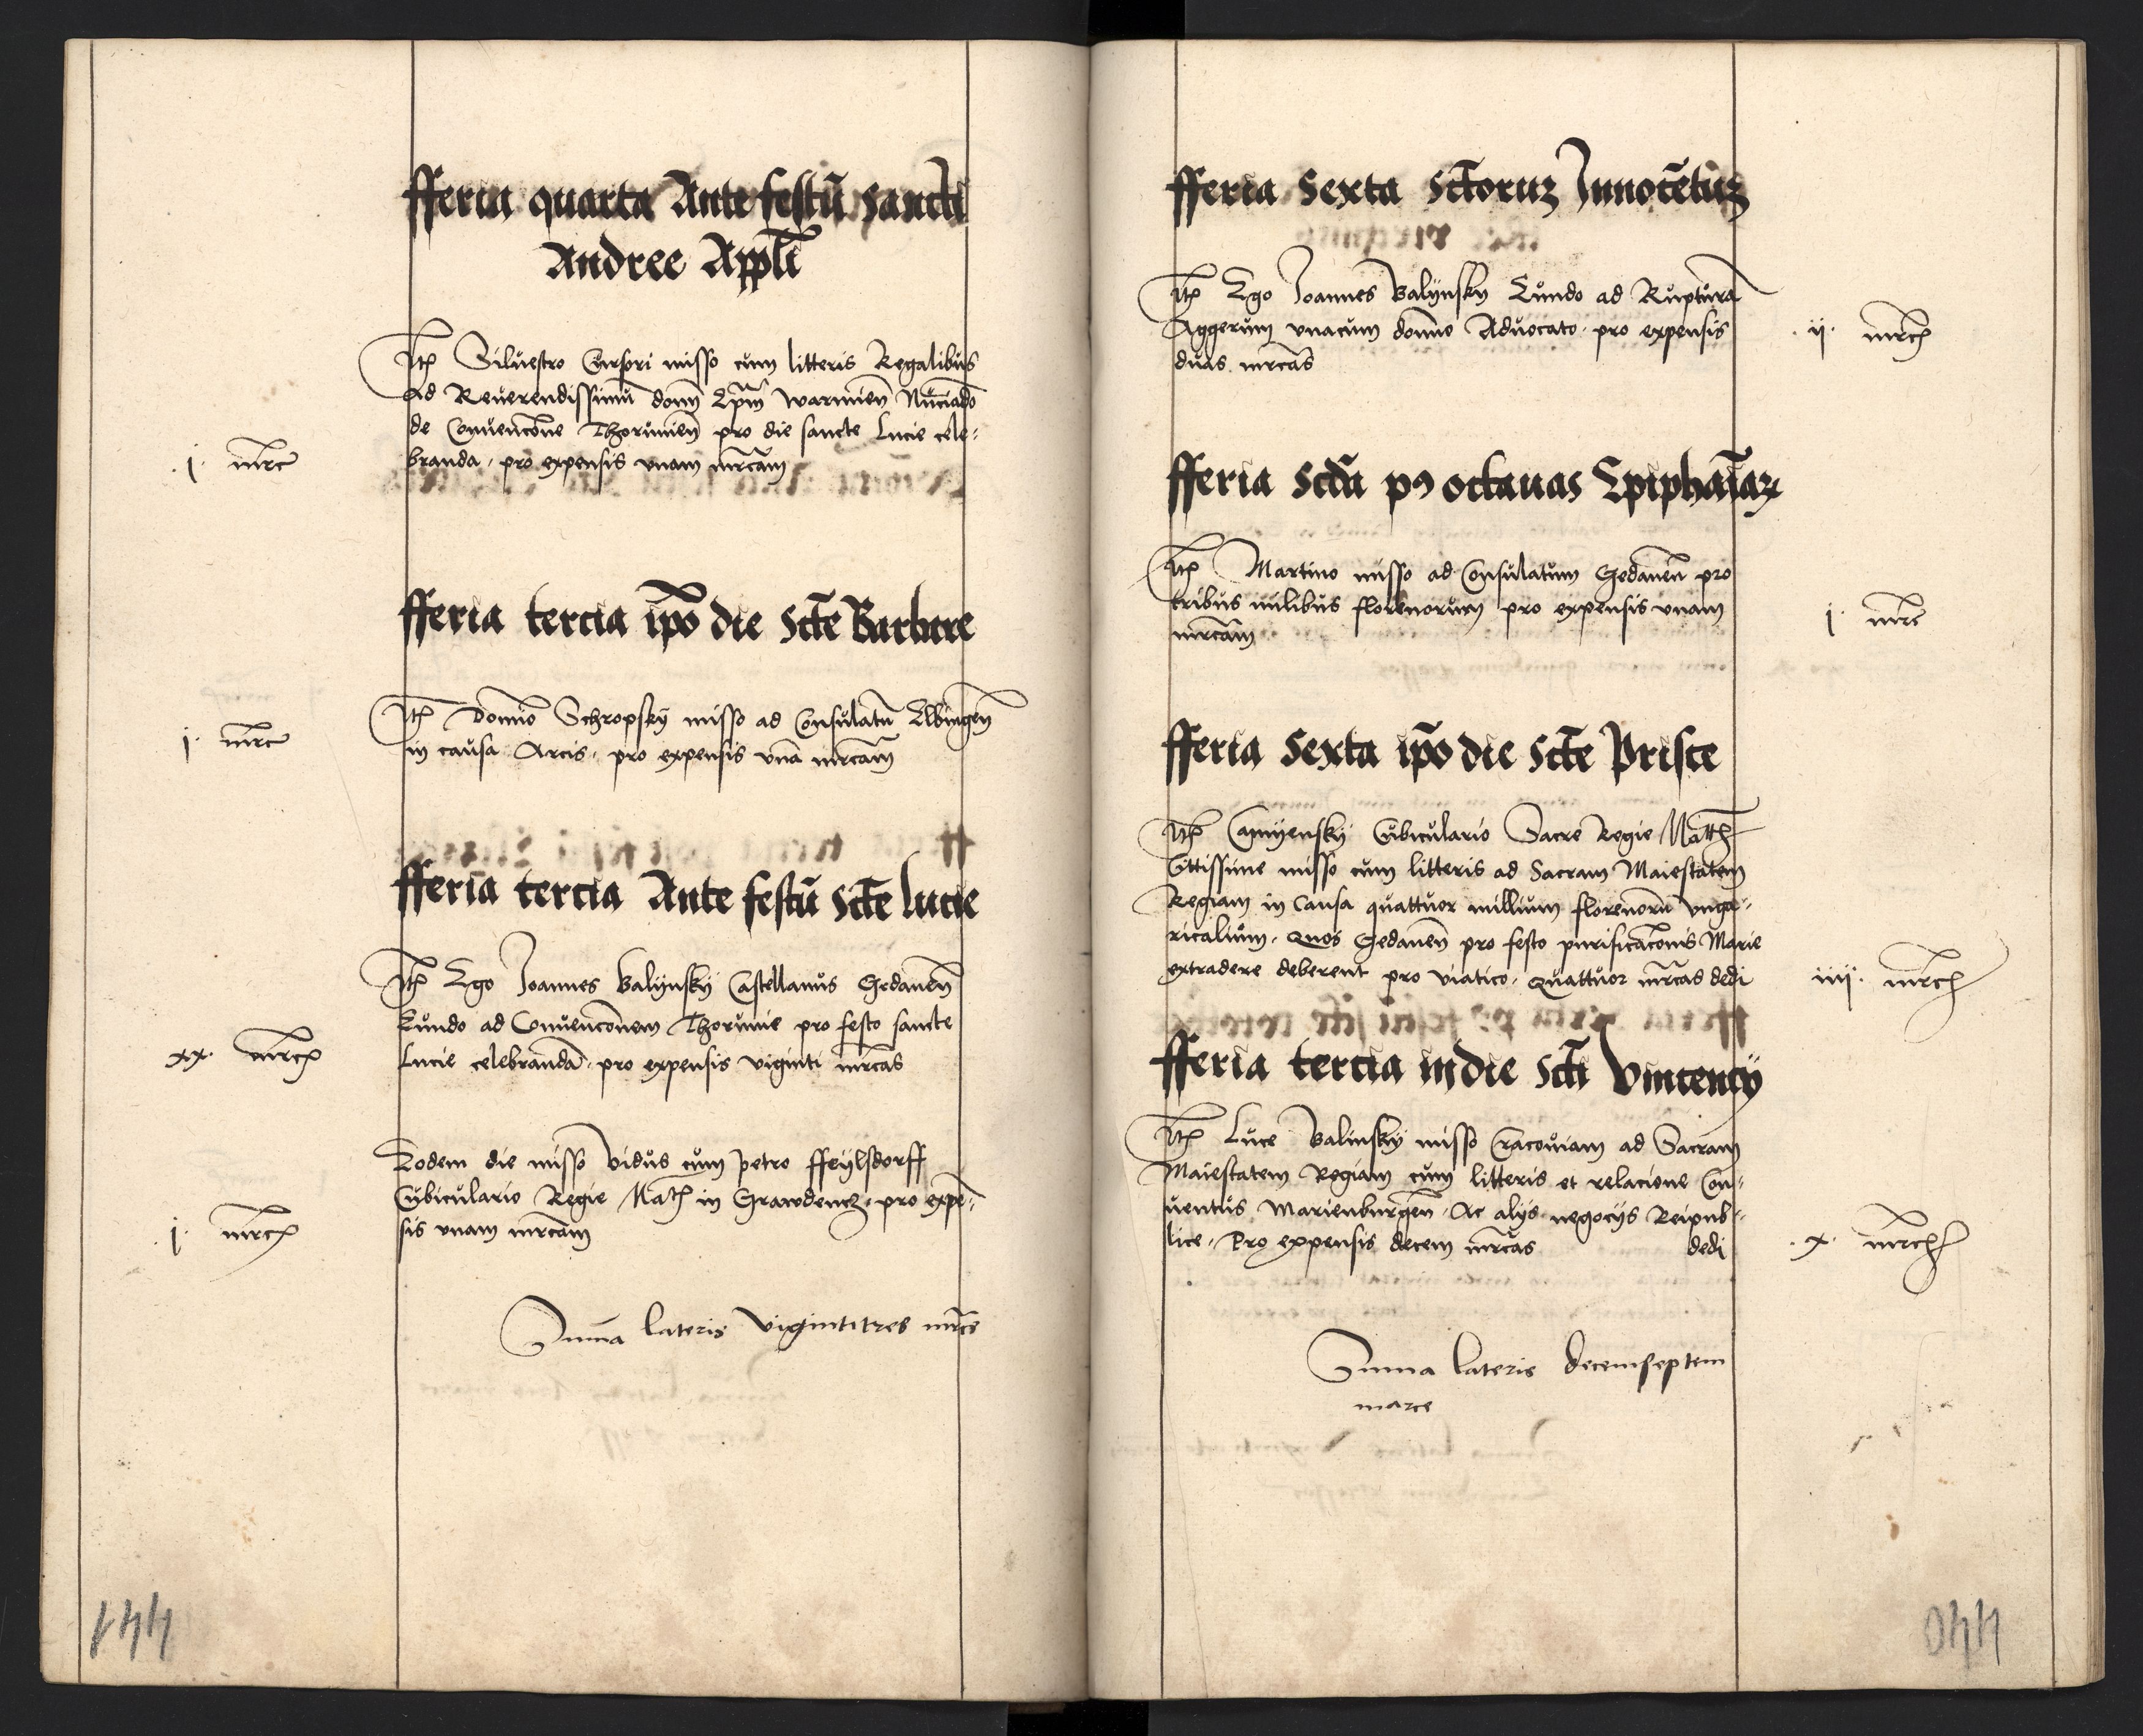 fferia quarta Ante festū Sancti
Andree Appłi
Itē Siluestro Cursori misso cum litteris Regalibus
Ad Reuerendissimū domī Epm̄ Warmień Nūciādo
de Conuencōne Thorunień pro die sancte Lucie cele-
branda, pro expensis vnam mrcam
.j. mrc
fferia tercia ipō die Sctē Barbare
Itē Domīo Schropsky misso ad Consulatū Elbingeń
in causa Arcis, pro expensis vnā mrcam
j. mrc
fferia tercia Ante festū Sctē Lucie
Itē Ego Joannes Balynsky Castellanus Gedaneń
Eundo ad Conuencōnem Thorunie pro festo sancte
Lucie celebrandā, pro expensis viginti mrcas
xx. mrc
Eodem die misso Vidus cum petro ffeylsdorff
Cubiculario Regie Matē in Grawdencz, pro expē-
sis vnam mrcam
.j. mrc
Summa lateris vigintitres mrce
441
fferia Sexta Sctōrum Innocētum
Itē Ego Joannes Balynsky Eundo ad Rupturā
Aggerum vnacum domīo Aduocato, pro expensis
duas mrcas
.ij. mrc
fferia Scdā p9 octauas Epiphaīarum
Itē Martino misso ad Consulatum Gedaneń pro
tribus milibus florenorum pro expensis vnam
mrcam
j. mrc
fferia Sexta ipō die Sctē Prisce
Itē Camyensky Cubiculario Sacre Regie Mattē
Cittissime misso cum litteris ad Sacram Maiestatem
Regiam in Causa quattuor millium florenorū vnga-
ricalium, Quos Gedaneń pro festo purificacōnis Marie
extradere deberent pro viatico, Quattuor mrcas dedi
iiij. mrc
fferia tercia in die Sctī Vincencij
Itē Luce Balinsky misso Cracouiam ad Sacram
Maiestatem Regiam cum litteris et relacione Con-
uentus Marienburgeń, Ac alijs negocijs Reipub-
lice, Pro expensis decem mrcas dedi
.x. mrc
Summa lateris decemseptem
marce
440